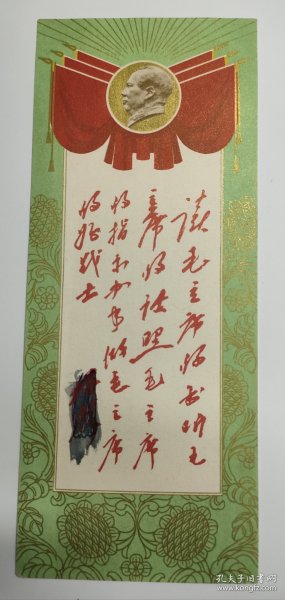 读毛主席的书听毛
主席的话照毛主席
的指示办事做毛主席
的好战士
孔夫子旧书网